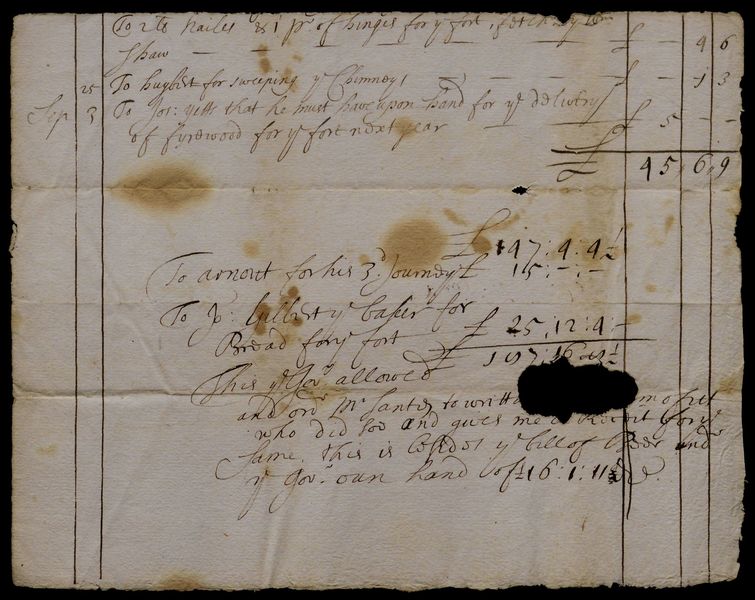 To 2 lb nailes & 1 pr. of hinges for ye fort,
Shaw — — — — — £ - 4 6
25 To huybert for sweeping ye Chimneys £ - 1 3
Sep 3 To Jos: yetts that he must have upon hand for ye delivery
of fyrewood for ye fort next year — £ 5 - -
£ 45, 6, 9
£ 147: 4: 4½
To arnout for his 3d Journey £ 15: -: -
To Jo: Gilbert ye baker for
Bread for ye fort £ 25, 12: 4: -
£ 187: 16
This ye Gov. allowed
and ordr. Mr Santen to
who did soe and gives me a for ye
Same, this is besides ye bill of Beer undr
ye Govr. own hand of £ 16: 1: 11